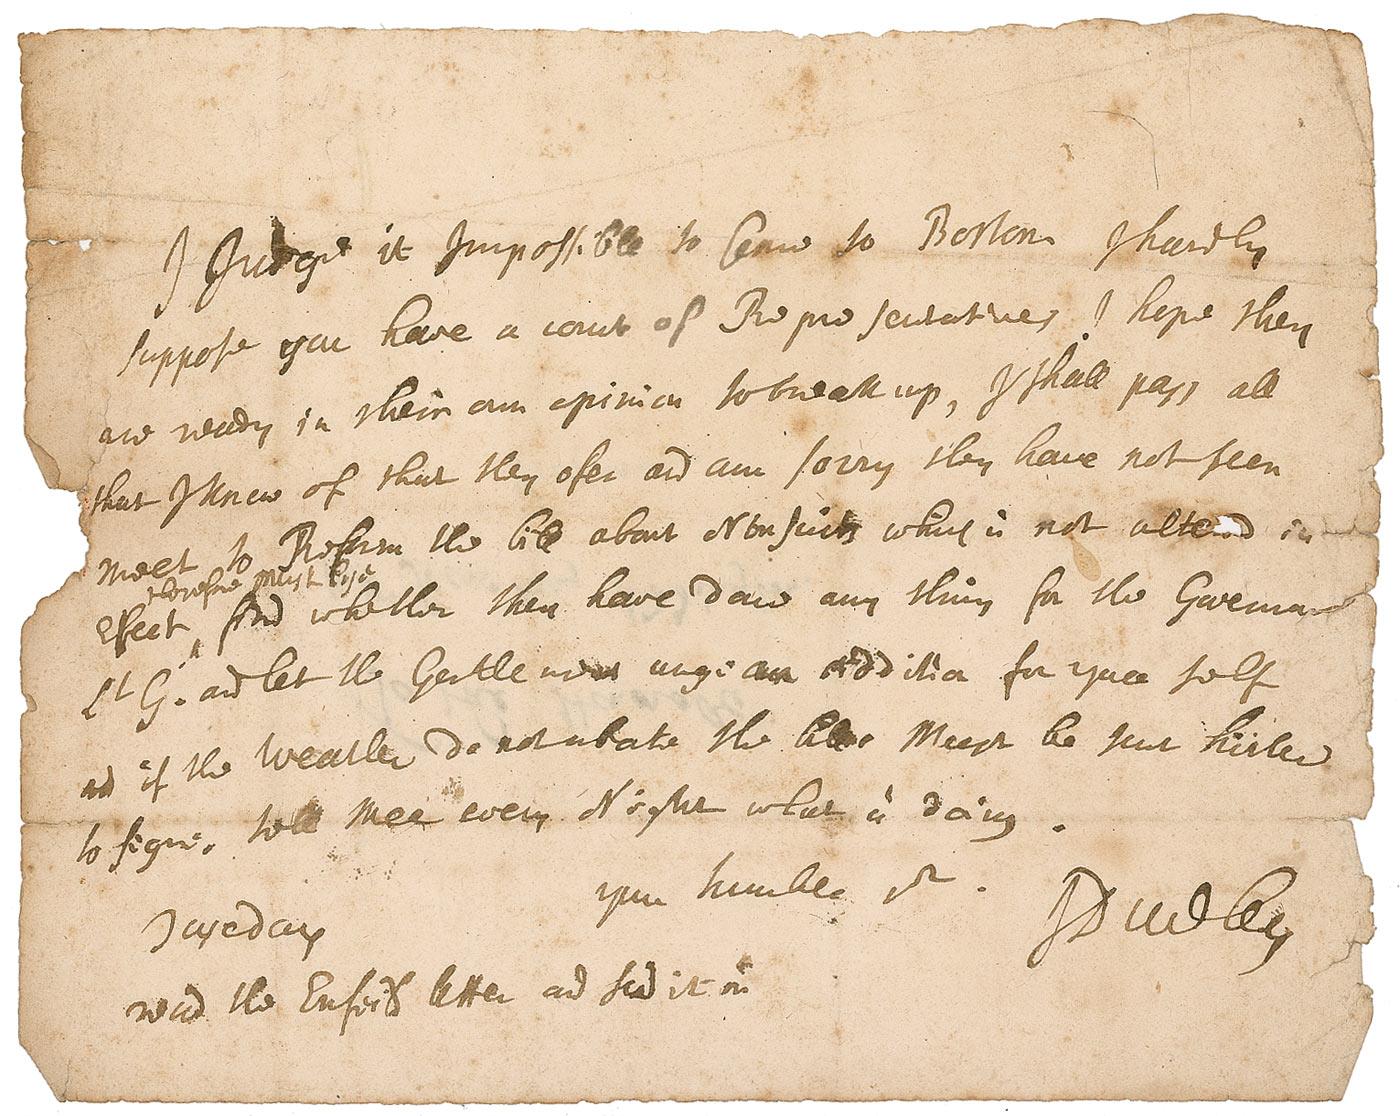 I Judge it Impossible to Come to Boston I hardly
suppose you have a court of Representatives I hope they
are ready in their own opinion to break up, I shall pass all
that I know of that they ofer and am sorry they have not seen
meet to Reform the bill about Nonsuits which is not altered in
therefore must lye
Effect find whether they have done any thing for the Governour
Lt G. and let the Gentlemen urge an Addition for your self
and if the Weather do not abate the bills Must be sent hither
to signe. tell Mee every Night what is doing.
your humble st.
JDudley
Tuseday
read the Enfeild letter and send it on